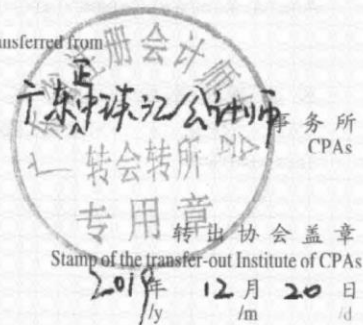 ansferred from
广东正中珠江会计师事务所
CPAs
广东省注册会计师协会
转会转所
专用章
转出协会盖章
Stamp of the transfer-out Institute of CPAs
2019年 12月 20日
/y /m /d